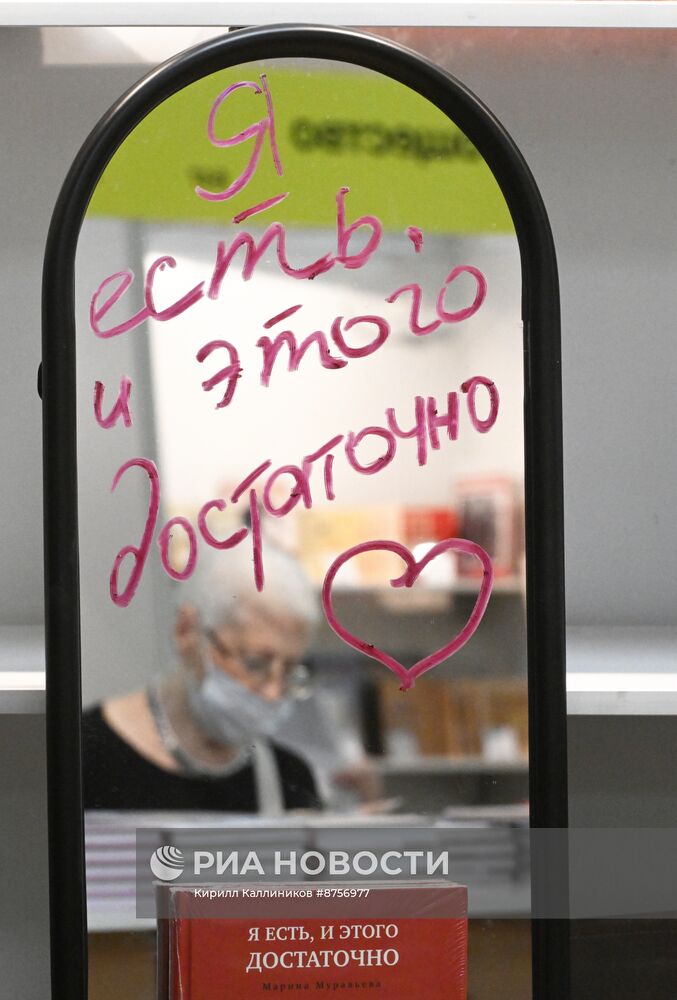 Я
есть,
и этого
достаточно
РИА НОВОСТИ
Кирилл Каллиников #8756977
Я ЕСТЬ, И ЭТОГО
ДОСТАТОЧНО
Марина Муравьева